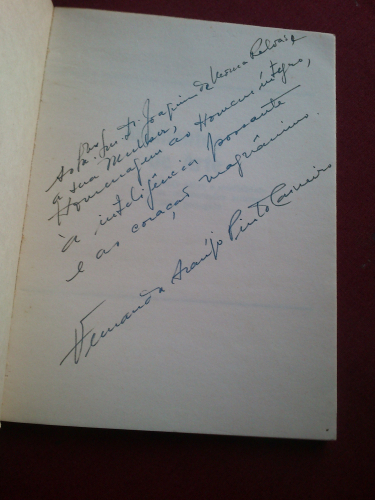 Ao Prof. Dr. Joaquim da Veronica e
a sua Mulher,
Homenagem ao Homem íntegro,
à inteligência possante
e ao coração magnânimo.
Fernanda Araújo Pinto Carneiro